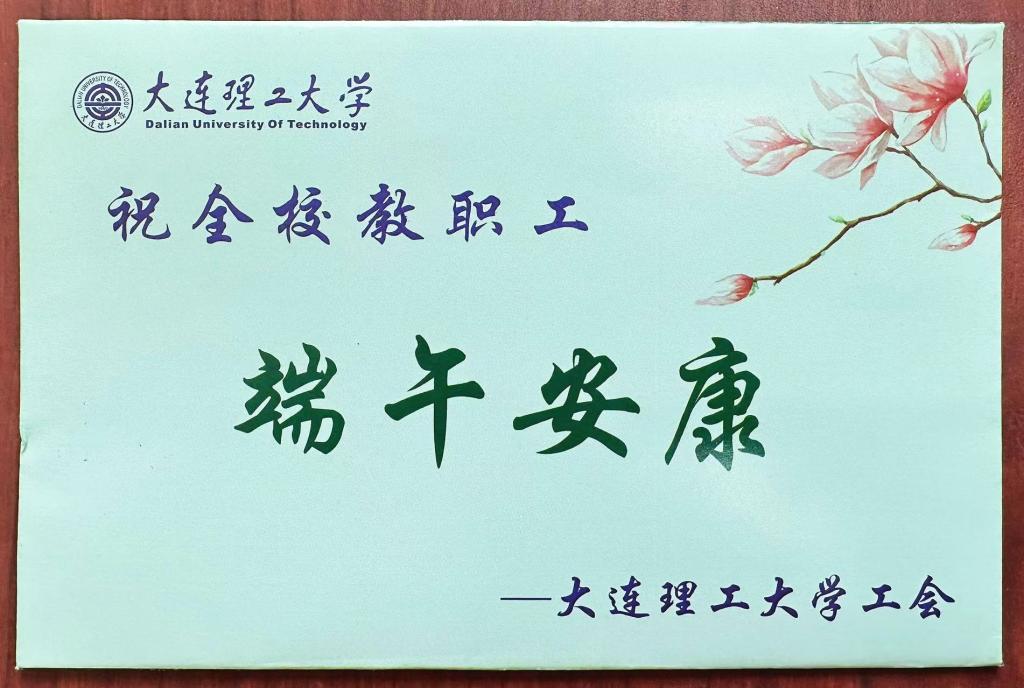 大连理工大学
Dalian University Of Technology
DALIAN UNIVERSITY OF TECHNOLOGY
大连理工大学
祝全校教职工
端午安康
——大连理工大学工会